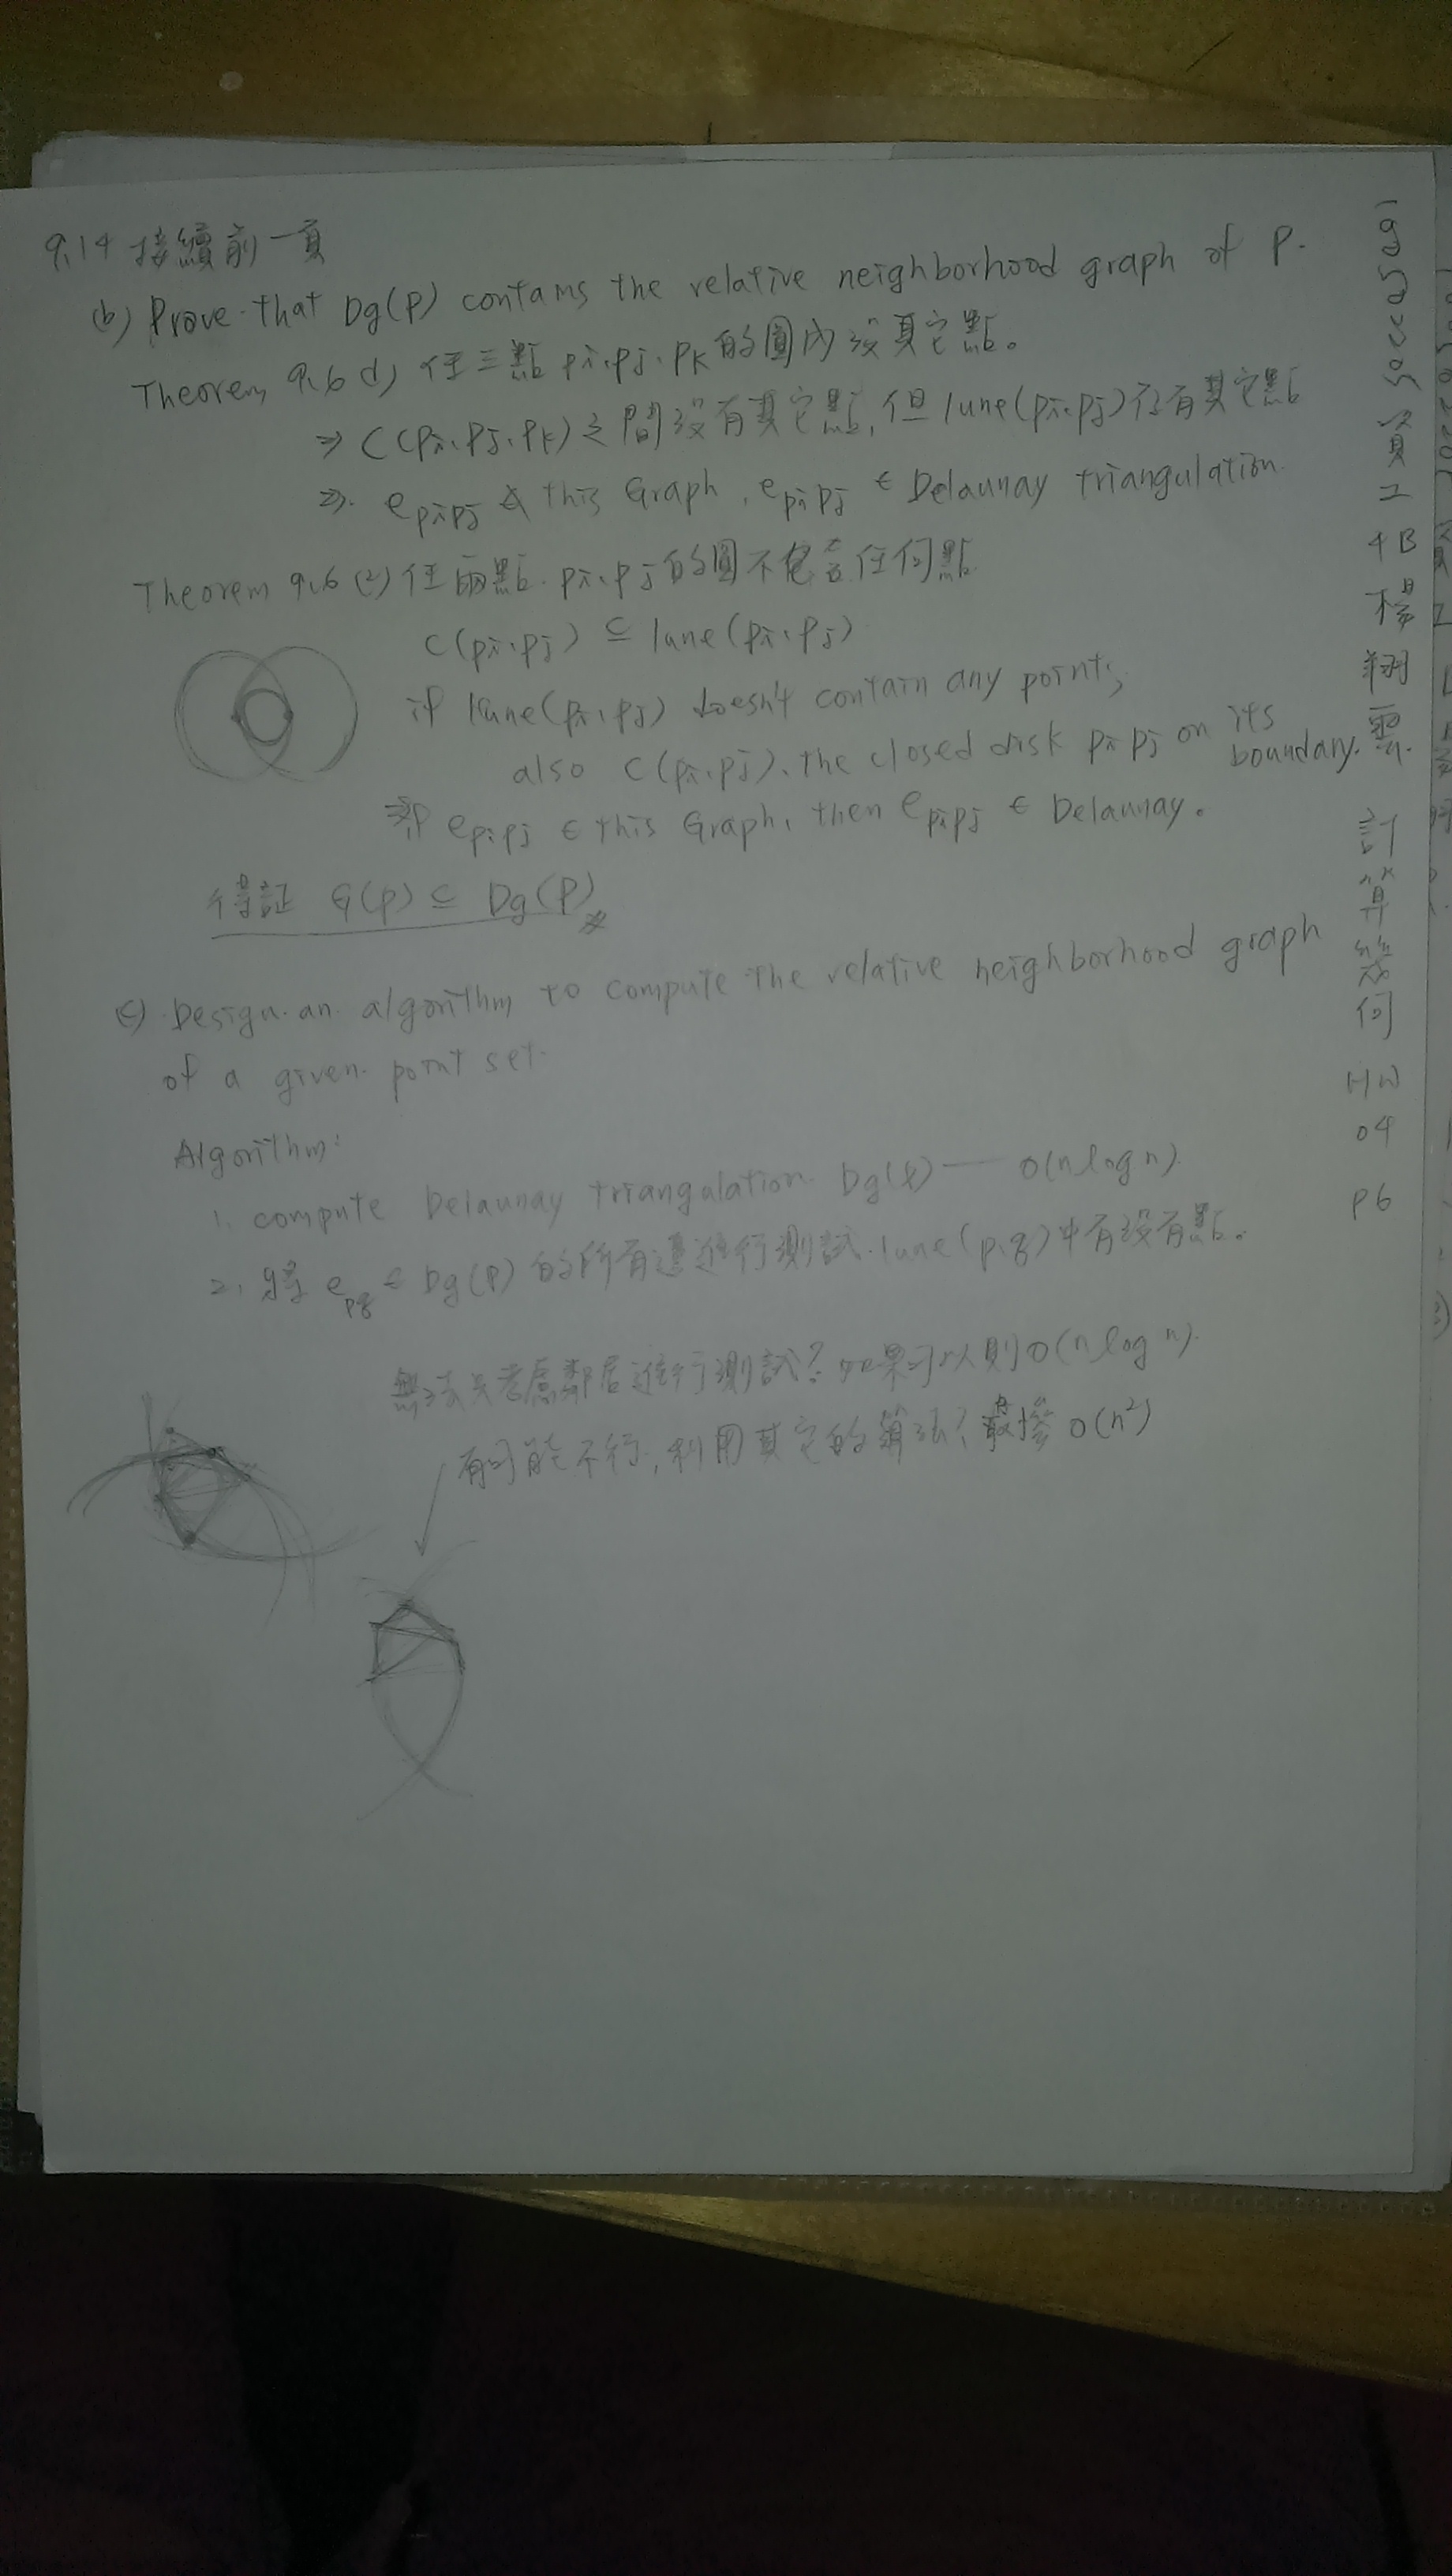 9.14 接續前一頁
(b) Prove that Dg(P) contains the relative neighborhood graph of P.
Theorem 9.6 (1) 任三點 pi, pj, pk 的圓內沒其它點。
⇒ C(pi, pj, pk) 之間沒有其它點, 但 lune(pi, pj) 存有其它點
⇒ e pipj ∉ this Graph, e pipj ∈ Delaunay triangulation.
Theorem 9.6 (2) 任兩點 pi, pj 的圓不包含任何點
C(pi, pj) ⊆ lune(pi, pj)
if lune(pi, pj) doesn't contain any point,
also C(pi, pj), the closed disk pi pj on its boundary.
即 e pipj ∈ this Graph, then e pipj ∈ Delaunay.
得証 G(P) ⊆ Dg(P)
(c) Design an algorithm to compute the relative neighborhood graph
of a given point set.
Algorithm:
1. compute Delaunay triangulation. Dg(P) — O(n log n).
2. 將 e pq ∈ Dg(P) 的所有邊進行測試. lune(p, q) 中有沒有點。
無法只考慮鄰居進行測試? 如果可以則 O(n log n).
有可能不行, 利用其它的算法? 最慘 O(n²)
資工
4B
楊翔雲
計算幾何
HW
04
P6